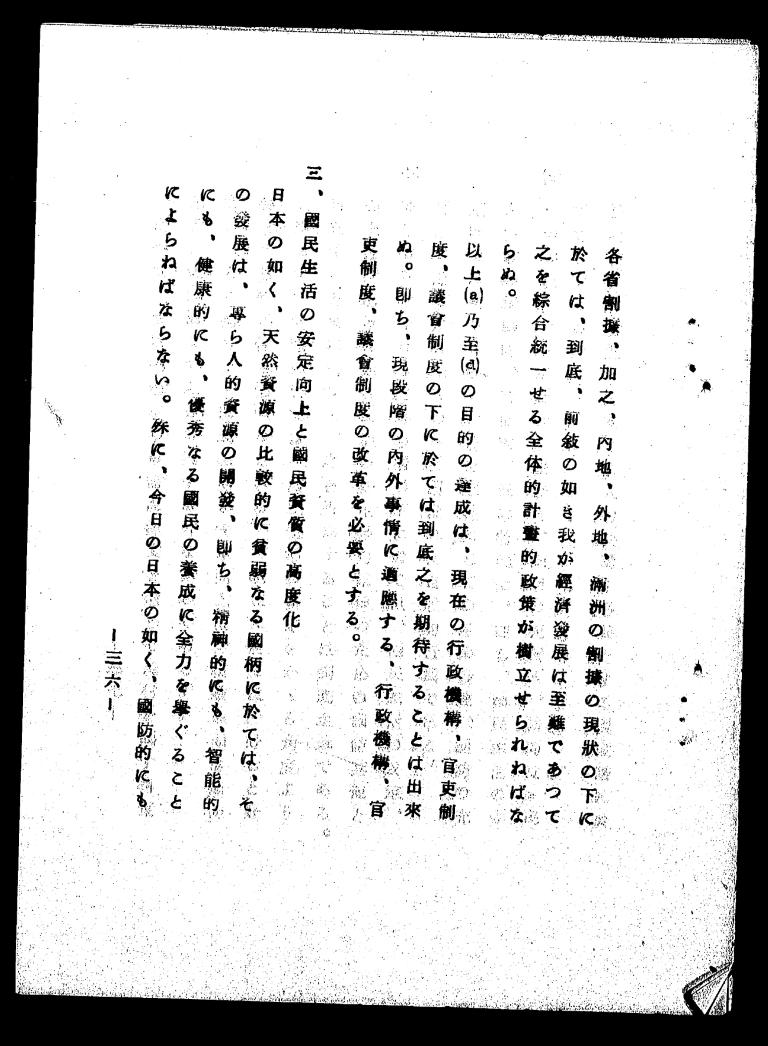 各省割據、加之、內地、外地、滿洲の割據の現狀の下に
於ては、到底、前敍の如き我が經濟發展は至難であつて
之を綜合統一せる全体的計畫的政策が樹立せられねばな
らぬ。
以上(a)乃至(d)の目的の達成は、現在の行政機構、官吏制
度、議會制度の下に於ては到底之を期待することは出來
ぬ。卽ち、現段階の內外事情に適應する、行政機構、官
吏制度、議會制度の改革を必要とする。
三、國民生活の安定向上と國民資質の高度化
日本の如く、天然資源の比較的に貧弱なる國柄に於ては、そ
の發展は、專ら人的資源の開發、卽ち、精神的にも、智能的
にも、健康的にも、優秀なる國民の養成に全力を擧ぐること
によらねばならない。殊に、今日の日本の如く、國防的にも
—三六—